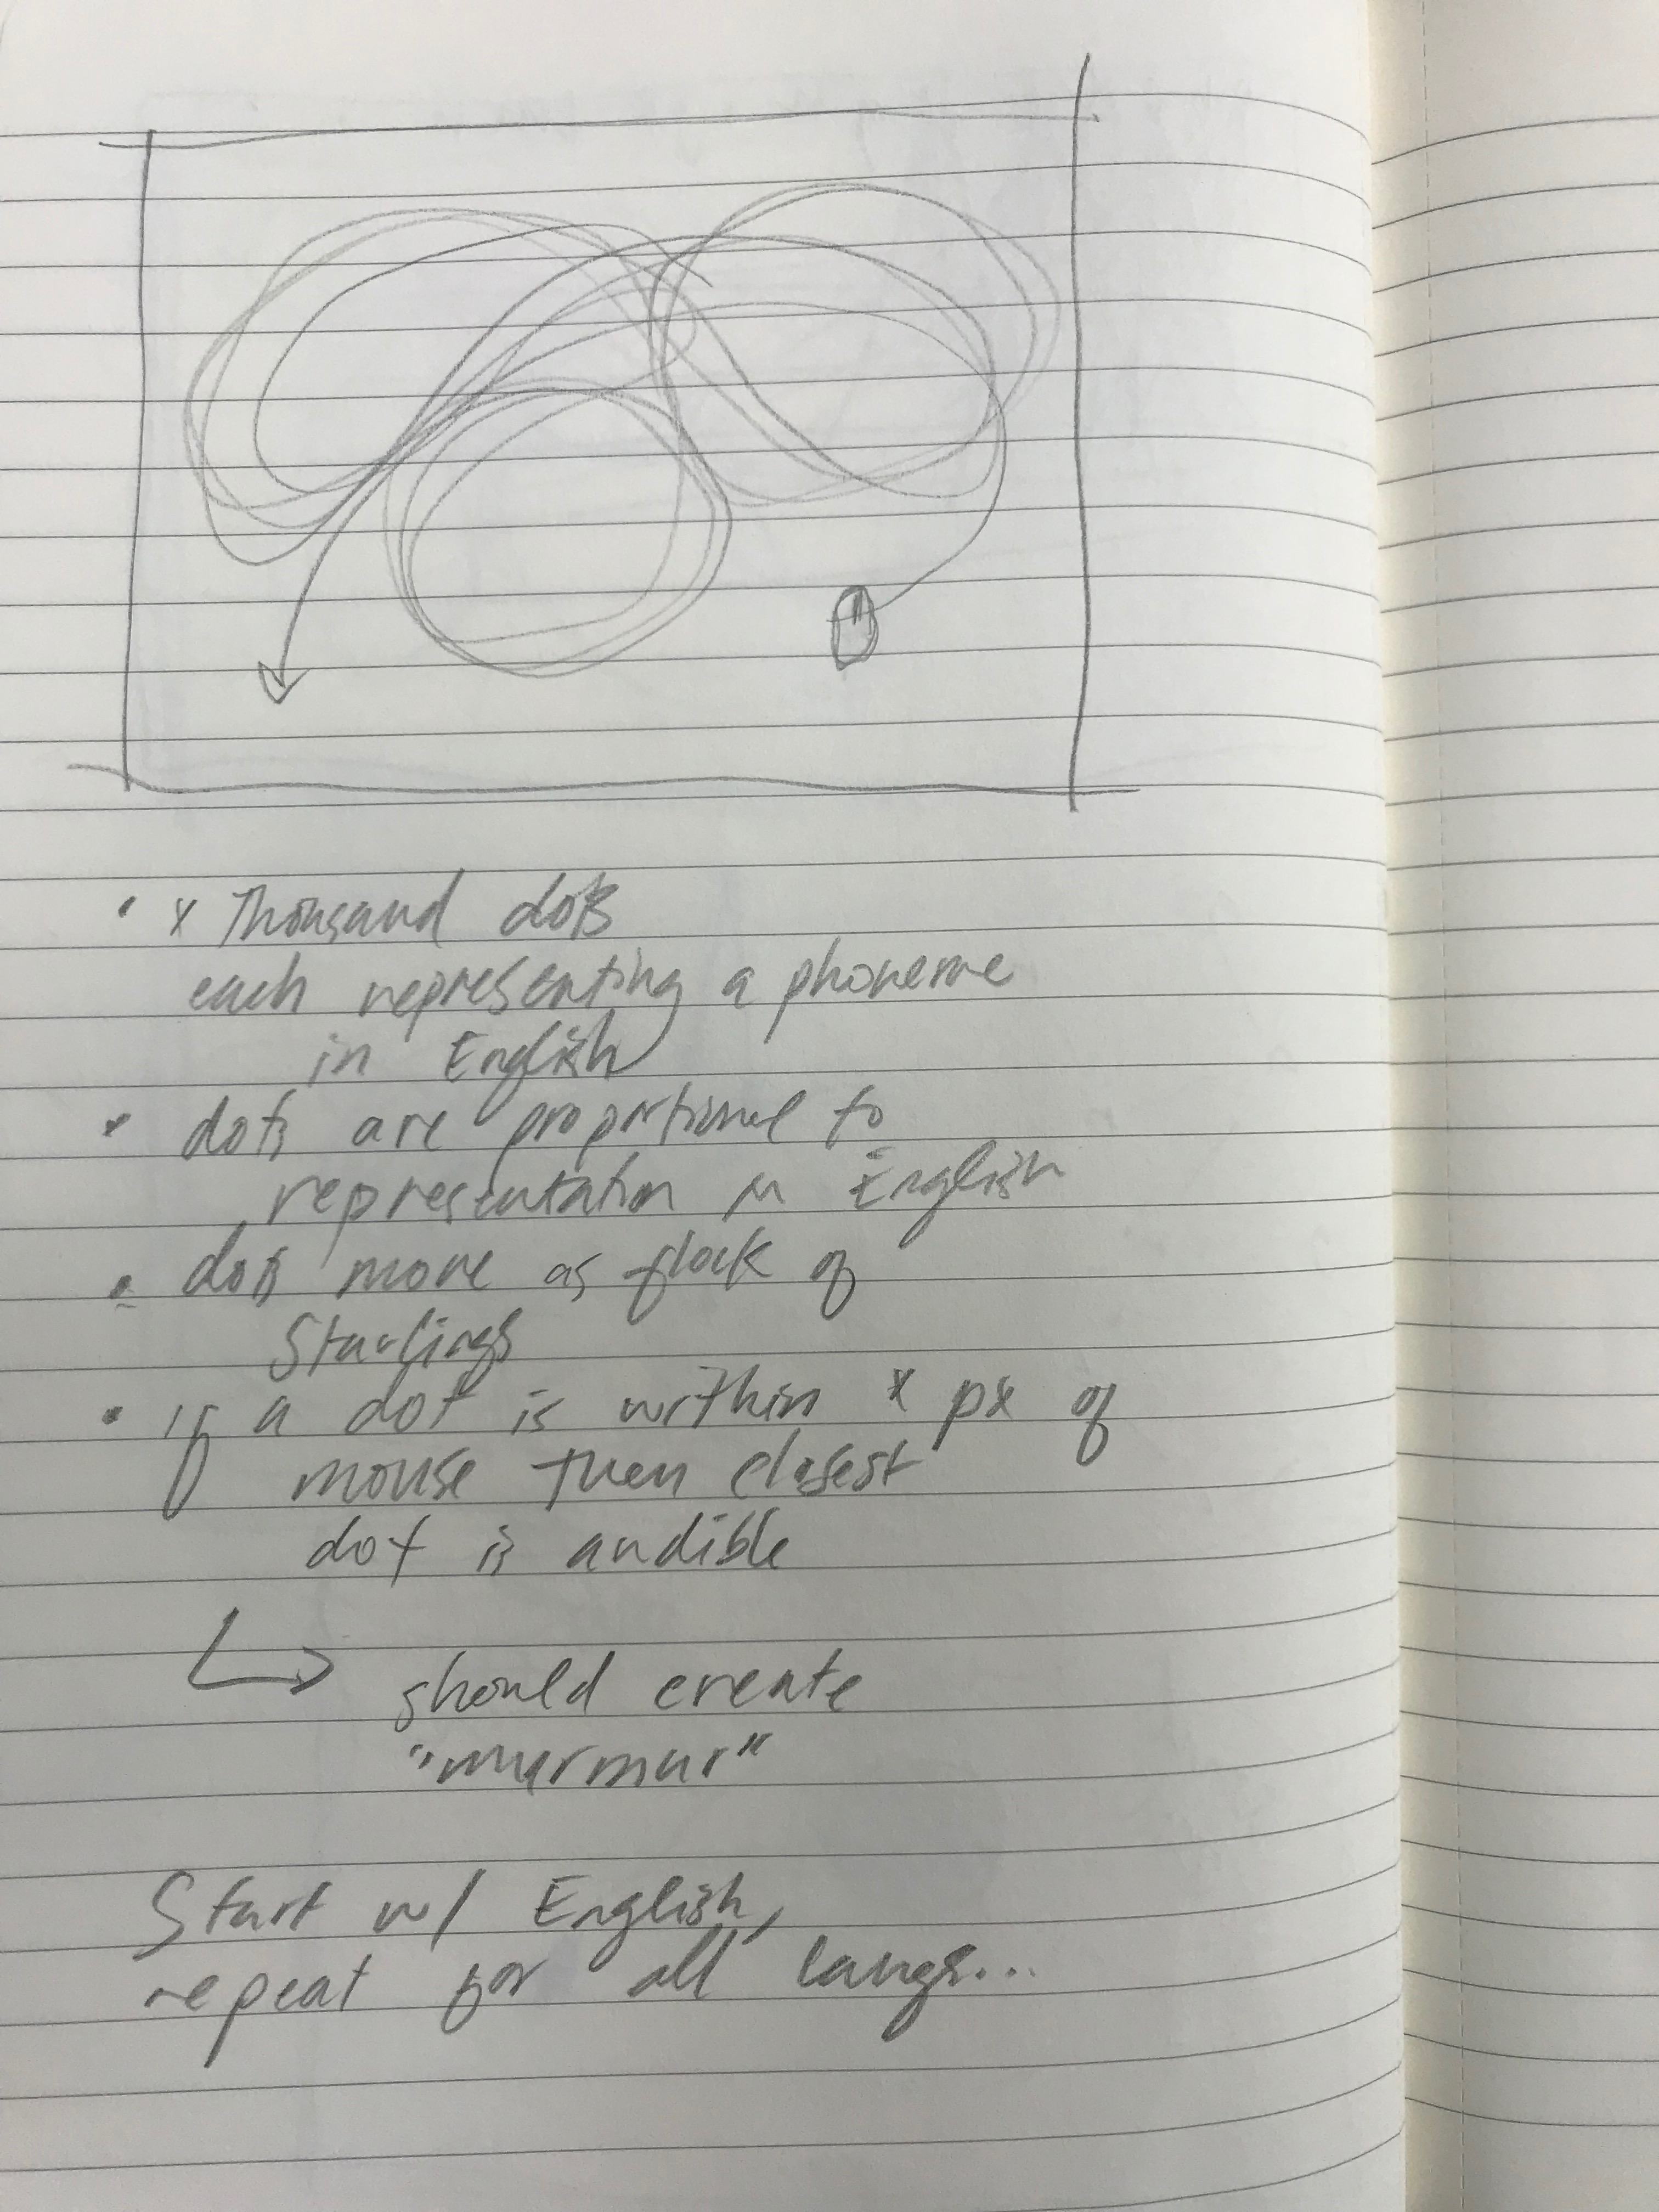 • x Thousand dots
each representing a phoneme
in English
• dots are proportional to
representation in English
• dots move as flock of
Starlings
• if a dot is within x px of
mouse then closest
dot is audible
↳ should create
"murmur"
Start w/ English,
repeat for all langs...